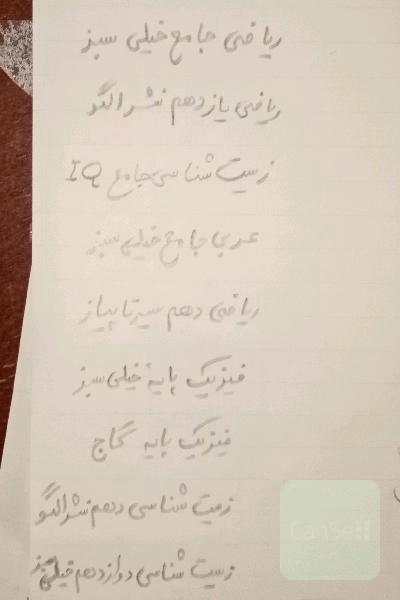 ریاضی جامع خیلی سبز
ریاضی یازدهم نشر الگو
زیست شناسی جامع IQ
عربی جامع خیلی سبز
ریاضی دهم سیر تا پیاز
فیزیک پایه خیلی سبز
فیزیک پایه گاج
زیست شناسی دهم نشر الگو
زیست شناسی دوازدهم خیلی سبز
CanSell